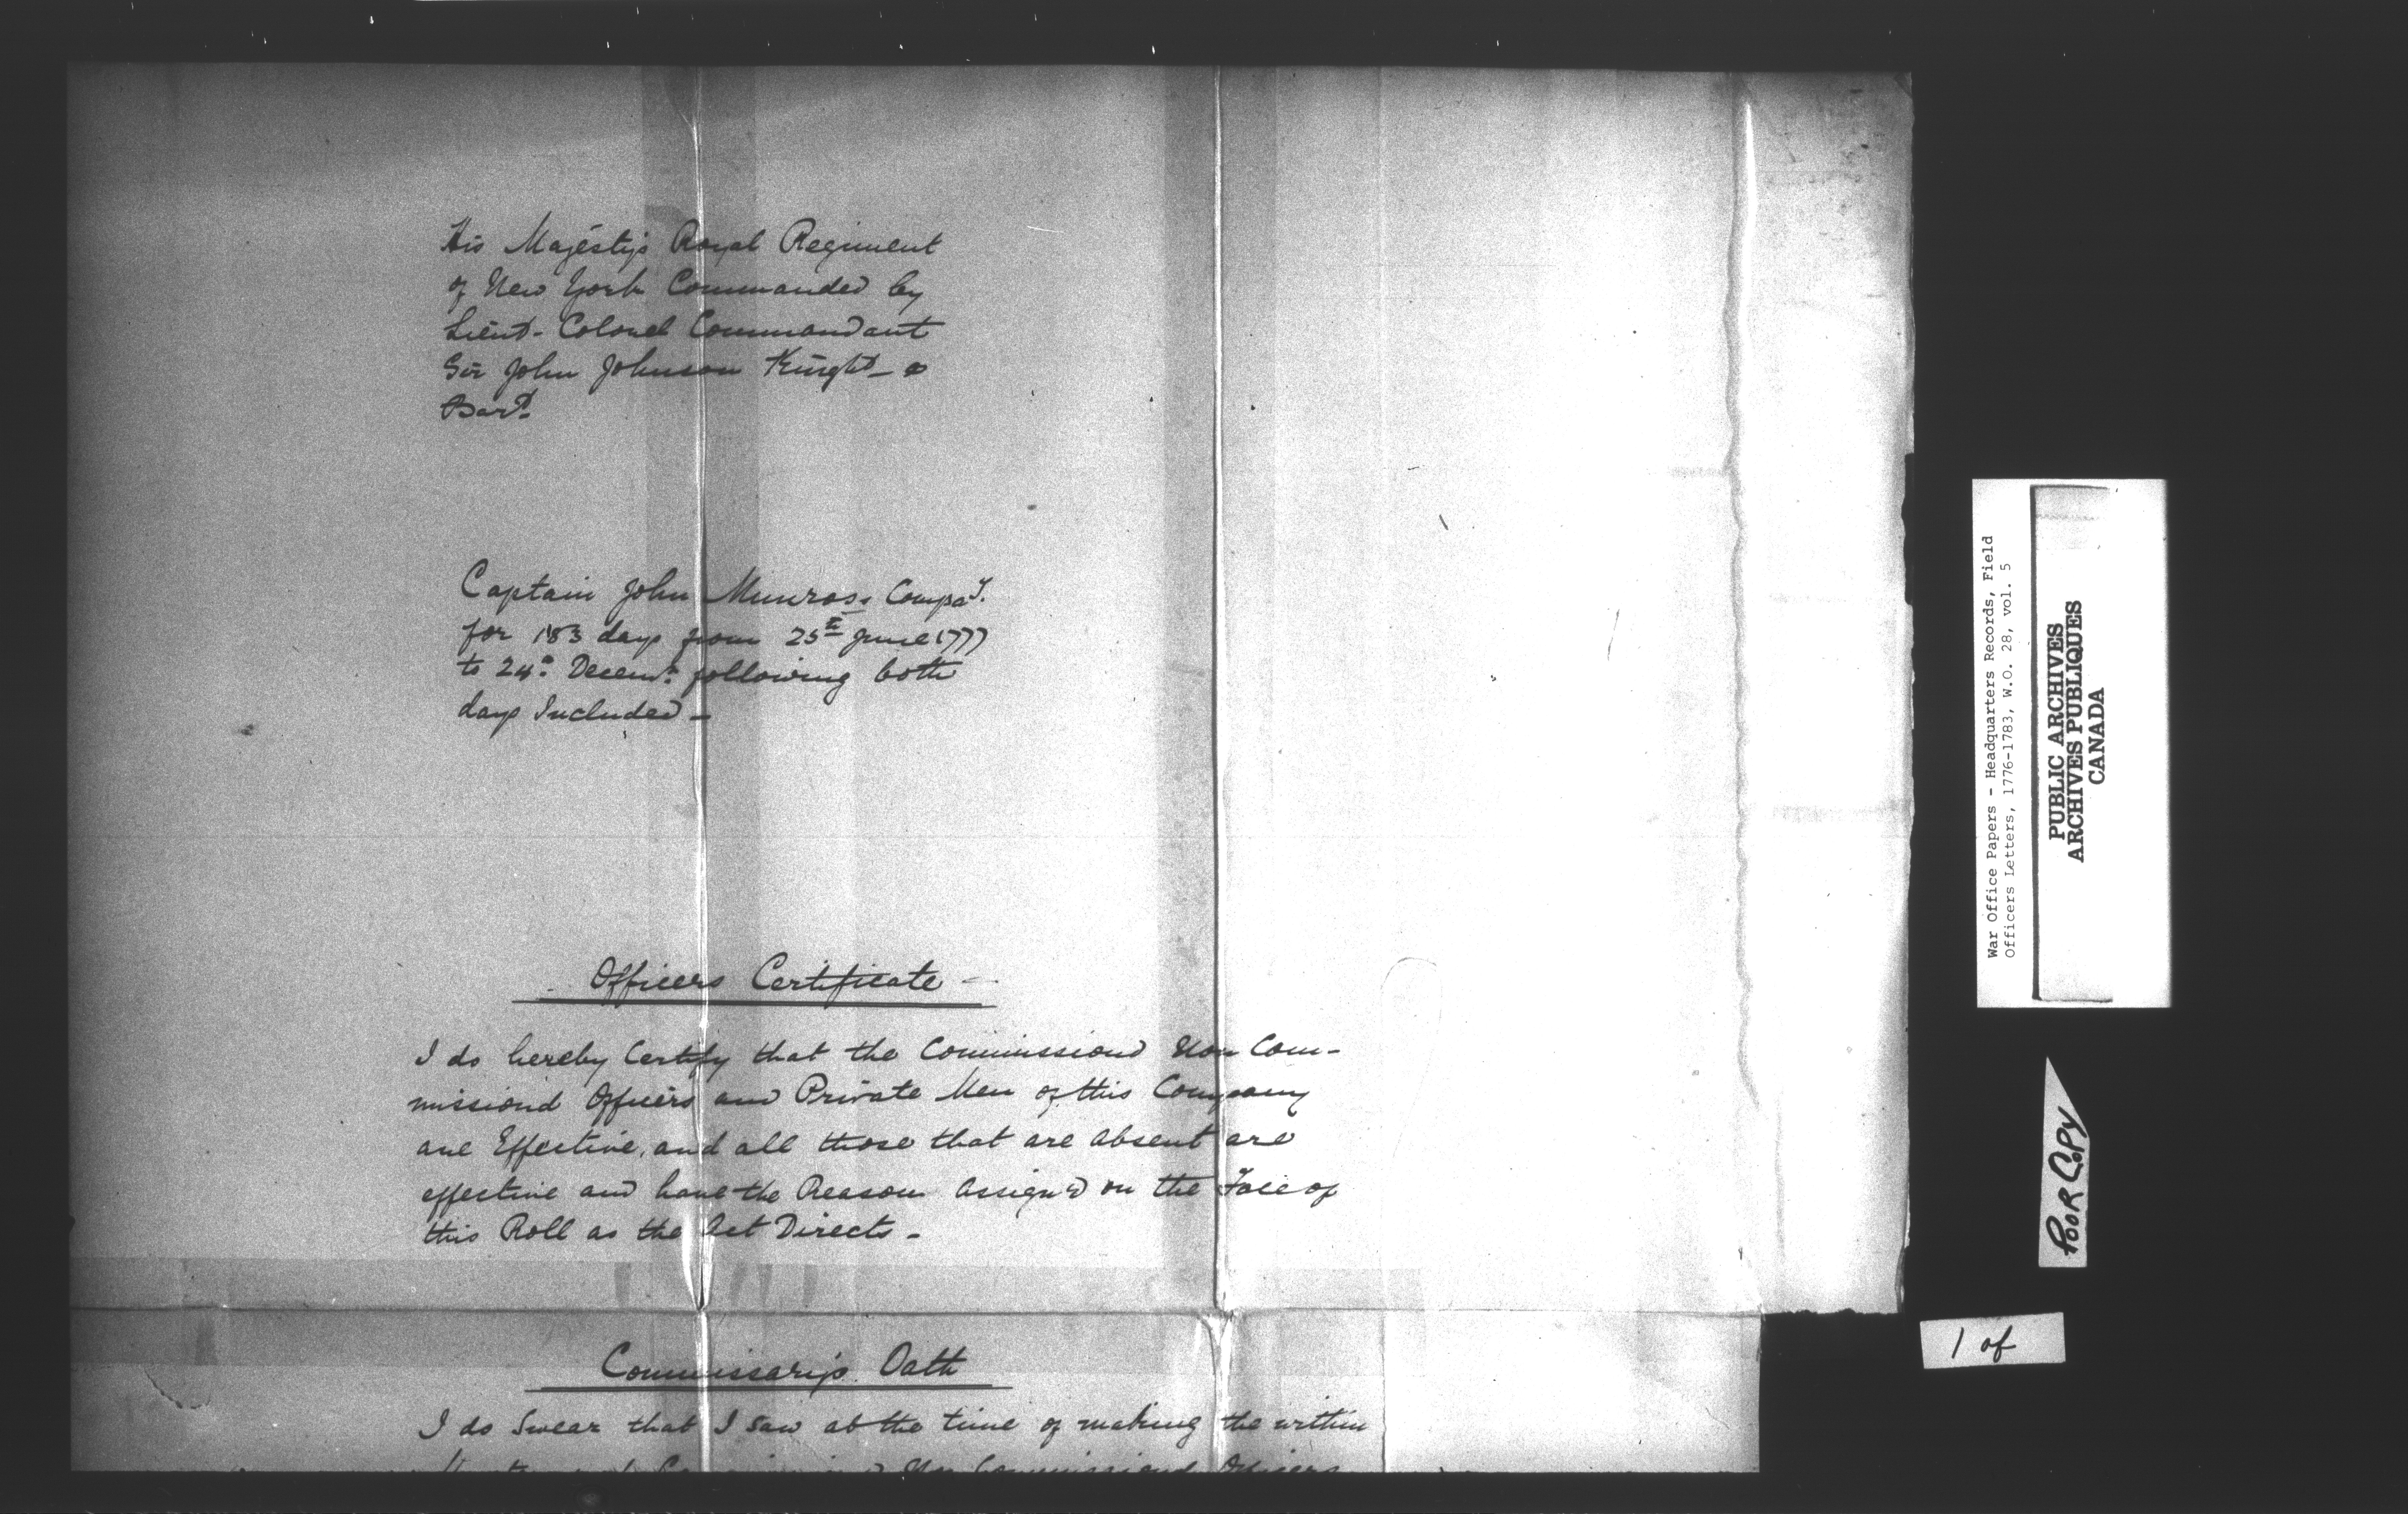 His Majesty's Royal Regiment
of New York Commanded by
Lieut- Colonel Commandant
Sir John Johnson Knight - &
Bart.
Captain John Munros, Compay.
for 183 days from 25th June 1777
to 24th Decemr. following both
days Included -
Officers Certificate -
I do hereby Certify that the Commissiond Non Com-
missiond Officers and Private Men of this Company
are Effective, and all those that are absent are
effective and have the Reason assign'd on the Face of
this Roll as the Act Directs -
Commissary's Oath
I do Swear that I saw at the time of making the within
Non Commissiond Officers
War Office Papers - Headquarters Records, Field
Officers Letters, 1776-1783, W.O. 28, vol. 5
PUBLIC ARCHIVES
ARCHIVES PUBLIQUES
CANADA
POOR COPY
1 of